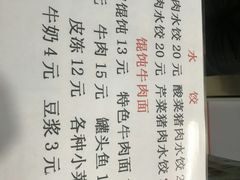 水 饺
肉水饺 20 元 酸菜猪肉水饺 2
肉水饺 20 元 芹菜猪肉水饺
馄饨牛肉面
馄饨 13 元 特色牛肉面
牛肉 15 元 罐头鱼 1
皮冻 12 元 各种小菜
牛奶 4 元 豆浆 3 元